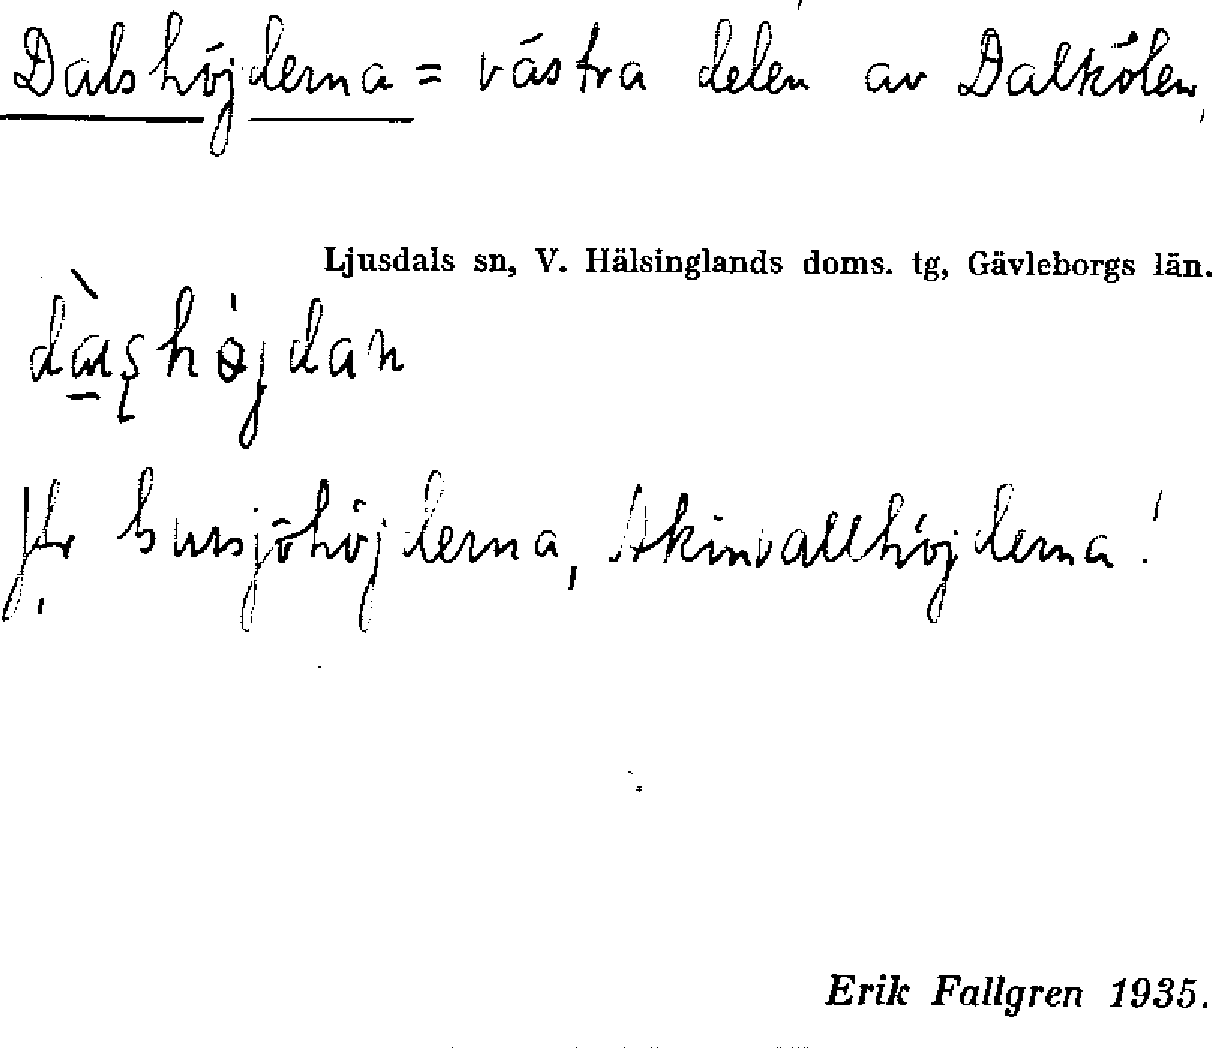 Dalshöjderna = västra delen av Dalkölen,
Ljusdals sn, V. Hälsinglands doms. tg, Gävleborgs län.
Jfr Gursjöhöjderna, Akinvallhöjderna!
Erik Fallgren 1935.